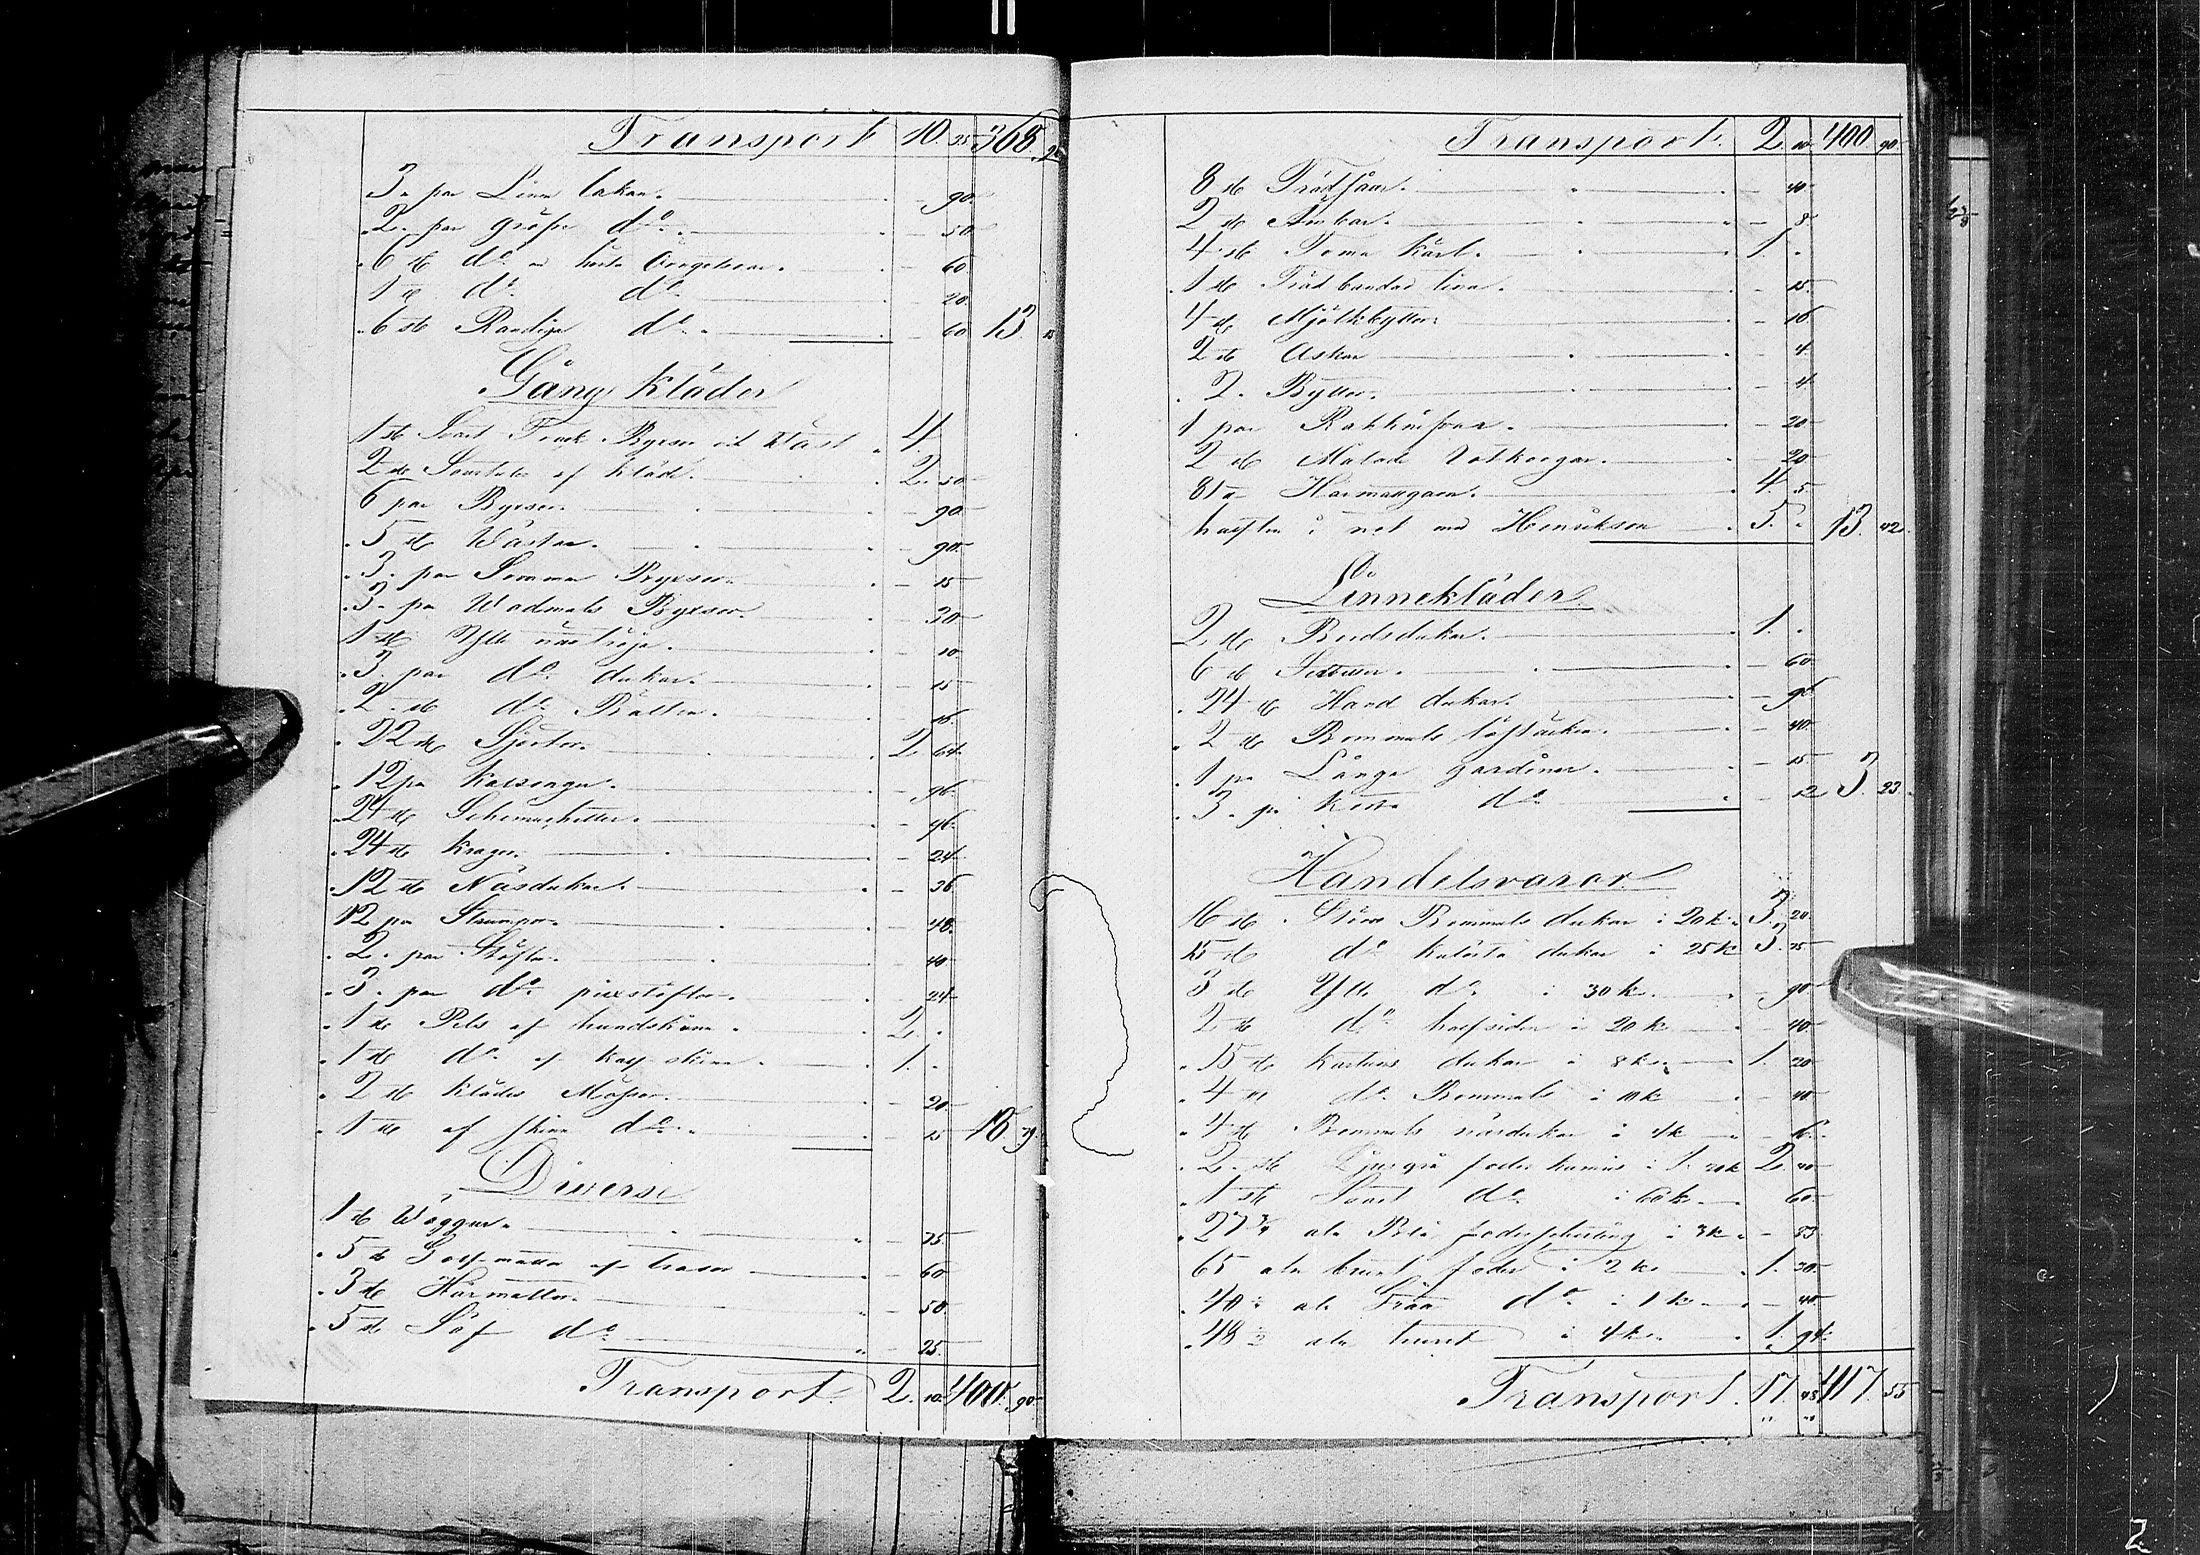 Transport 10. 35 368.
3. par Linne lakan. — 90.
2. par gröfre do. — 50
6 st do — 60
1 st do do. — 20.
6 st Randiga do. — 60 13.
Gång kläder
1 st Svart Frack Byxor och Väst 4.
2 st Surtuter af kläde. 2. 50
6 par Byxor. — 90
5 st Wästar. — 90
3. par Sommar Byxor — 15
3. par Wadmals Byxor — 30
1 st Ylle nattröja. — 10.
3. par do dukar. — 15
2 st do Bälten. — 16.
22 st Sjortor. 2. 64.
12 par Kalsonger. — 96.
24 st Schemischetter. — 96.
24 st Kragar. — 24.
12 st Näsdukar. — 36
12 par Strumpor. — 48.
2. par Stöflar. — 40
3. par do pjexstöflar. — 24
1 st Pels af hundskinn. 2.
1 st do af kalfskinn. 1.
2 st Klädes Mössor. — 20
1 st af skinn do. — 25 18. 79.
Diverse
1 st Waggor. — 75
5 st Golfmattor af trasor — 60
3 st Hårmattor. — 50.
5 st Säf do — 25.
Transport. 2. 10. 400. 90.
Transport. 2. 10. 400 90.
8 st Trädfåar. — 40.
2 st Ämbar. — 8.
4 st Toma Kärl. 1.
1 st Träd bandad tina. — 15.
4 st Mjölkbyttor. — 16
2 st Askar — 4.
2. Byttor. — 4.
1 par — 20
2 st Malade Votkorgar. — 20
81 Harmansgarn. 4. 5
halften i not med Henrikson 5. 13. 42.
Linnekläder.
2 st Bordsdukar. 1.
6 st Servetter. — 60
24 st Hand dukar. — 96
2 st Bommuls — 40.
1 pr Långa gardiner. — 15
3. pr Korta do — 12 3. 23.
Handelsvaror.
16 st Större Bommuls dukar à 20 k. 3. 20
15 st do kulörta dukar à 25 k 3. 75
3 st Ylle do à 30 k. — 90
2 st do halfsiden à 20 k — 40.
15 st Kartuns dukar à 8 k. 1. 20
4 st do Bommuls à 10 k — 40
4 st Bommuls näsdukar à 4 k — 16
2 st Ljusgrå foder 2. 40
1 st Svart do à 60 k. — 60
27 3/4 aln Blå foder à 3 k — 83
65 aln brunt foder à 2 k. 1. 30.
40 aln Gråa do à 1 k. — 40
48 1/2 aln à 4 k. 1. 94.
Transport. 17. 48 417. 55
2